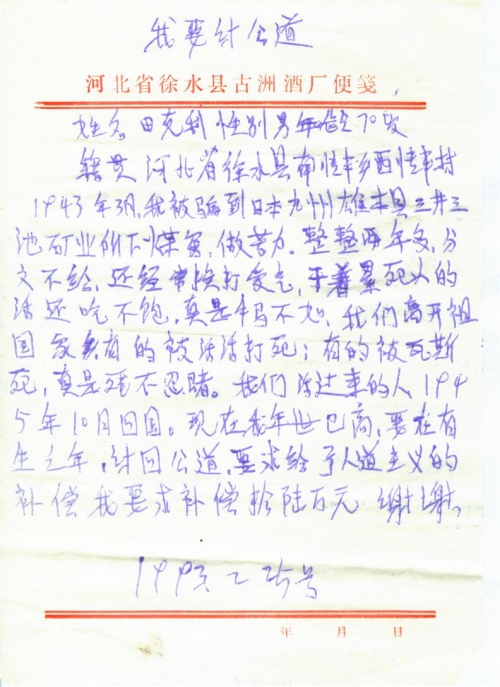 我要讨公道
河北省徐水县古洲酒厂便笺
姓名 田克利 性别 男 年龄 70岁
籍贯 河北省徐水县南
1943年3月，我被骗到日本九州雄本县三井三
池矿业所下煤窑，做苦力，整整两年多，分
文不给，还经常挨打受气，干着累死人的
活还吃不饱，真是牛马不如，我们离开祖
国 有的被活活打死；有的被瓦斯
死，真是 不忍睹。我们活过来的人，194
5年10月回国。现在我年世已高，要在有
生之年，讨回公道，要求给予人道主义的
补偿 我要求补偿拾陆万元 谢谢。
199
年 月 日